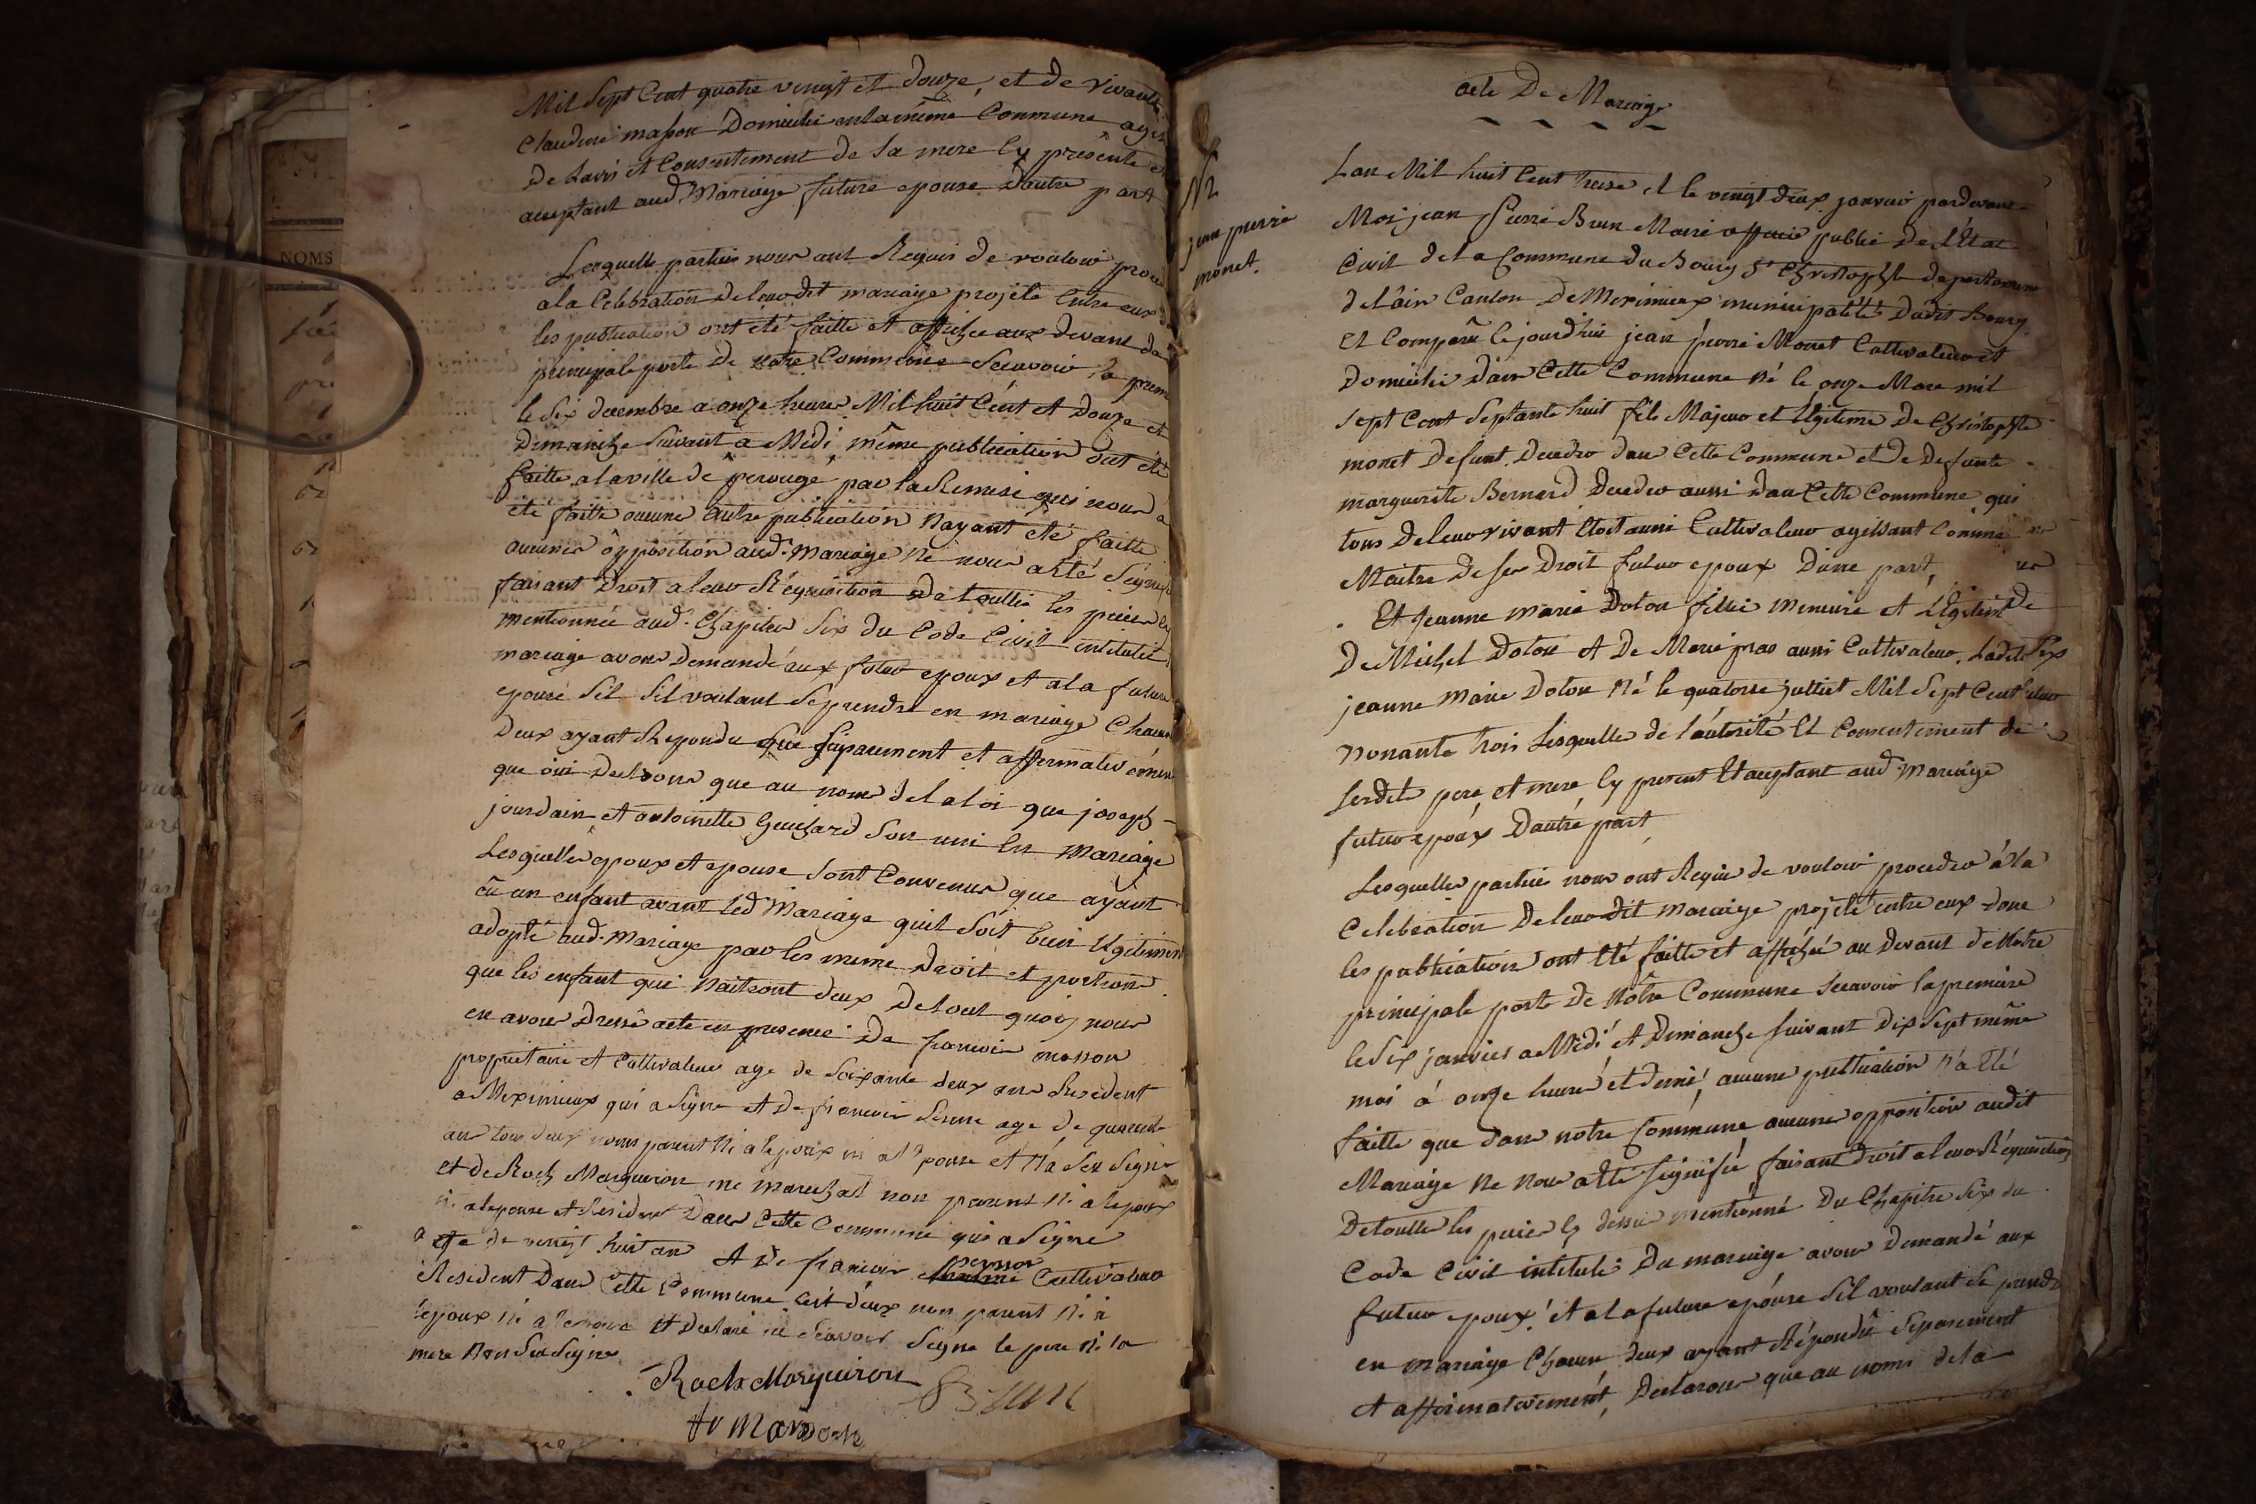 Mil Sept Cent quatre vingt et douze, et de vivante
Claudine masson Domicilié en la même Commune agis
De Lavis et Consentement de Sa mere Cy presente et
aceptant aud. Mariage future epouse Dautre part
Lesquelle parties nous ont Requis de vouloir proce
a la Celebration De leur dit mariage projeté Entre eux d
les publication ont été faitte et affichée aux devant de
principale porte De notre Commune Scavoir la prem
le Six decembre a onze heures Mil huit Cent et Douze et
Dimanche Suivant a Midi, même publication ont été
faitte a la ville de perouge par la Remise qui nous a
été faitte aucune Autre publication Nayant été faitte
aucunes opposition aud. Mariage Ne nous a été Signif
faisant Droit a leur Réquisition De touttes les pieces Cy
mentionnée aud. Chapitre Six du Code Civil intitulé
mariage avons Demandé aux futur epoux et a la future
epouse Sil Sil voulant Se prendre en mariage Chacun
Deux ayant Repondu que Separement et affermativemen
que oui Declarons que au nom de la loi que joseph
jourdain et antoinette Guichard Son uni En Mariage
Lesquelles epoux et epouse Sont Convenus que ayant
eu un enfant avant led. Mariage quil Soit bien legitimem
adopté aud. Mariage par les meme Droit et portions
que les enfant qui Naitront deux De tout quoy nous
en avons Dressé acte en presence De francois masson
proprietaire et Cultivateur age de Soixante deux ans Resident
a Meximieux qui a Signe et De francois age de quarente
ans tous deux non parent Ni a lepoux ni a lepouse et Na Seu Signe
et de Roch Marguiron marechal non parent Ni a lepoux
ni a lepouse et Resident Dans Cette Commune qui a Signe
age de vingt huit an et De francois pernon Cultivateur
Resident Dans Cette Commune deux non parent Ni a
lepoux Ni a lepouse et Declaré ne Scavoir Signe le pere Ni la
mere Non Seu Signe
Roch Marguiron Brun
acte De Mariage
jean pierre
monet.
Lan Mil huit Cent treise et le vingt deux janvier pardevant
Moi jean pierre Brun Maire officie public De LÉtat
Civil de La Commune du Bourg St Christophe departement
de Lain Canton De Meximieux municipalité Dudit Bourg
Et Comparu Cejourdhui jean pierre Monet Cultivateur et
Domicilié Dans Cette Commune Né le onze Mars mil
sept Cent Septante huit fils Majeur et legitime De Christophe
monet Defunt Decedez dans Cette Commune et De Defunte
marguerite Bernard Decedez aussi Dans Cette Commune qui
tous De leur vivant Etoit aussi Cultivateur agissant Comme
Maitre De ses Droit futur epoux Dune part
Et Jeanne marie Doton fillie mineure et Légitime
De Michel Doton et De Marie pras aussi Cultivateur. Ladite
jeanne Marie Doton Né le quatorse juilliet Mil Sept Cent
Nonante trois Lesquelle de Lautorité Et Consentement de
Sesdits pere et mere Cy present Et aceptant aud. Mariage
futur epoux Dautre part
Lesquelles parties nous ont Requis de vouloir proceder à la
Celebration De leur dit Mariage projété entre eux done
les publications ont été faitte et affiché au Devant de Notre
principale porte De Nôtre Commune Scavoir la premiere
le Six janvier a Midi et Dimanche Suivant Dix Sept même
moi á onze heure et demie, aucune publication Na été
faitte que dans notre Commune aucune opposition audit
Mariage Ne nous a été Signifié, faisant Droit a leur Réquisition
De toutte les pieces Cy dessus mentionné Du Chapitre Six du
Code Civil intitulé Du mariage avons Demandé aux
futur epoux et a la future epouse Sil voulant Se prendre
en mariage Chacun deux ayant Répondû Separement
et affermativement, Declarons que au nom de la